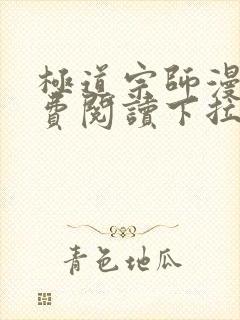 極道宗師漫
費閱讀下拉
青色地瓜